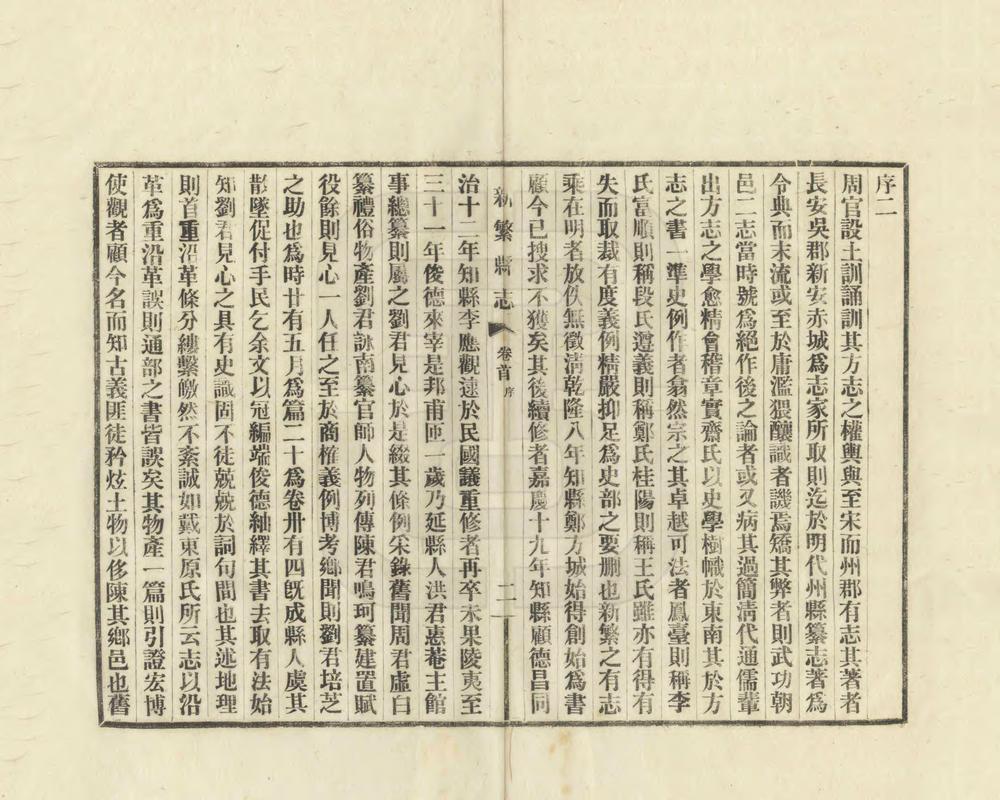 序二
周官設土訓誦訓其方志之權輿與至宋而州郡有志其著者
長安吳郡新安赤城爲志家所取則迄於明代州縣纂志著爲
令典而末流或至於庸濫猥釀識者譏焉矯其弊者則武功朝
邑二志當時號爲絕作後之論者或又病其過簡清代通儒輩
出方志之學愈精會稽章實齋氏以史學樹幟於東南其於方
志之書一準史例作者翕然宗之其卓越可法者鳳臺則稱李
氏富順則稱段氏遵義則稱鄭氏桂陽則稱王氏雖亦有得有
失而取裁有度義例精嚴抑足爲史部之要删也新繁之有志
乘在明者放佚無徵淸乾隆八年知縣鄭方城始得創始爲書
顧今已搜求不獲矣其後續修者嘉慶十九年知縣顧德昌同
新繁縣志 卷首 序 二
治十二年知縣李應觀逮於民國議重修者再卒未果陵夷至
三十一年俊德來宰是邦甫匝一歲乃延縣人洪君惪菴主館
事總纂則屬之劉君見心於是綴其條例采錄舊聞周君虛白
纂禮俗物產劉君詠南纂官師人物列傳陳君鳴珂纂建置賦
役餘則見心一人任之至於商榷義例博考鄉聞則劉君培芝
之助也爲時廿有五月爲篇二十爲卷卅有四旣成縣人虞其
散墜促付手民乞余文以冠編端俊德紬繹其書去取有法始
知劉君見心之具有史識固不徒兢兢於詞句間也其述地理
則首重沿革條分縷繫皦然不紊誠如戴東原氏所云志以沿
革爲重沿革誤則通部之書皆誤矣其物產一篇則引證宏博
使觀者顧今名而知古義匪徒矜炫土物以侈陳其鄉邑也舊